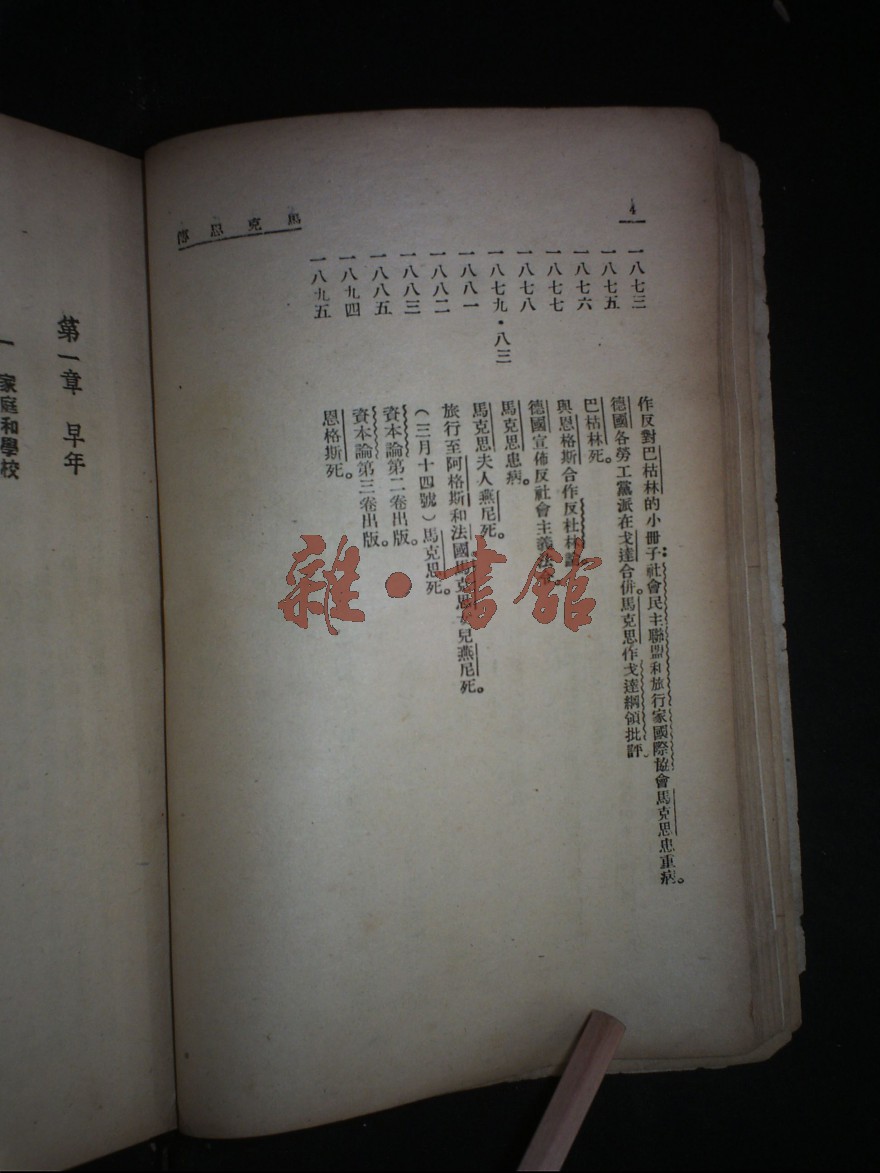 4
一八七三 作反對巴枯林的小冊子:社會民主聯盟和旅行家國際協會馬克思患重病。
一八七五 德國各勞工黨派在戈達合併。馬克思作戈達綱領批評。
一八七六 巴枯林死。
一八七七 與恩格斯合作反杜林論。
一八七八 德國宣佈反社會主義法令。
一八七九・八三 馬克思患病。
一八八一 馬克思夫人燕尼死。
一八八二 旅行至阿格斯和法國馬克思女兒燕尼死。
一八八三 (三月十四號)馬克思死。
一八八五 資本論第二卷出版。
一八九四 資本論第三卷出版。
一八九五 恩格斯死。
馬克思傳
第一章 早年
一 家庭和學校
雜・書館